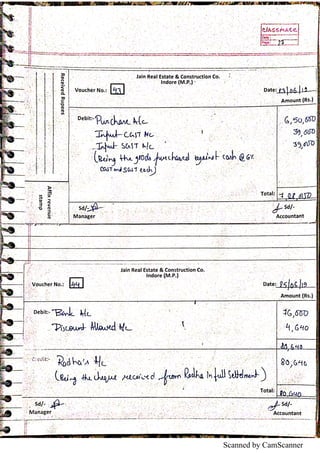 classmate
Date
Page 22
Jain Real Estate & Construction Co.
Indore (M.P.)
Voucher No.: 43
Date:
Amount (Rs.)
Received Rupees
Affix revenue stamp
Debit:- Purchase A/c 6,50,000
Input CGST A/c 39,000
Input SGST A/c 39,000
(Being the goods purchased against cash @ 6%
CGST and SGST each)
Total: 7,28,000
Sd/-
Manager
Sd/-
Accountant
Jain Real Estate & Construction Co.
Indore (M.P.)
Voucher No.: 44
Date: 25/06/19
Amount (Rs.)
Debit:- Bank A/c 76,000
Discount Allowed A/c 4,640
80,640
Credit:- Radha's A/c 80,640
(Being the cheque received from Radha in full settelment)
Total: 80,640
Sd/-
Manager
Sd/-
Accountant
Scanned by CamScanner